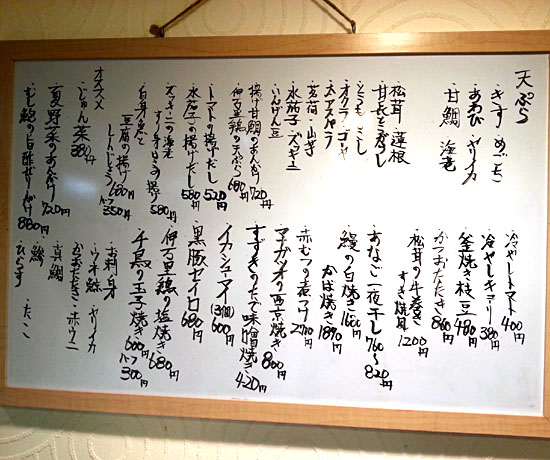 天ぷら
・きす めごち
・あわび ・ヤリイカ
甘鯛 海老
・松茸・蓮根
・甘長とうがらし
・とうもろこし
・オクラ・ゴーヤ
・太アスパラ
・茗荷・山芋
・水茄子・ズッキーニ
・いんげん豆
・揚げ甘鯛のあんかけ 720円
・伊万里鶏の天ぷら 680円
・トマトの揚げだし 520円
・水茄子の揚げだし 580円
・ズッキーニの海老
すり身はさみ揚げ 580円
・白身魚と
豆腐の揚げ
しんじょう 680円
ハーフ 350円
オススメ
・じゅん菜 380円
・夏野菜のあんかけ 720円
・むし鮑の白酢ぜりーがけ 880円
・冷やしトマト 400円
・冷やしキュウリ 380円
・釜焼き枝豆 480円
・かつおたたき 860円
・松茸の牛巻き
すき焼風 1200円
・あなご一夜干し 760〜820円
・鰻の白焼き 1600円
かば焼き 1890円
・赤むつの煮つけ 2710円
・マナガツオの西京焼き 800円
・すずきのたで味噌焼き 420円
・イカシューマイ(3個) 600円
・黒豚セイロ 680円
・伊万里鶏の塩焼き 680円
・千鳥の玉子焼き 600円
ハーフ 300円
・お刺身
・シマ鯵 ・ヤリイカ
・かつおたたき・赤ウニ
・真鯛
・鱸
・ひらす ・たこ